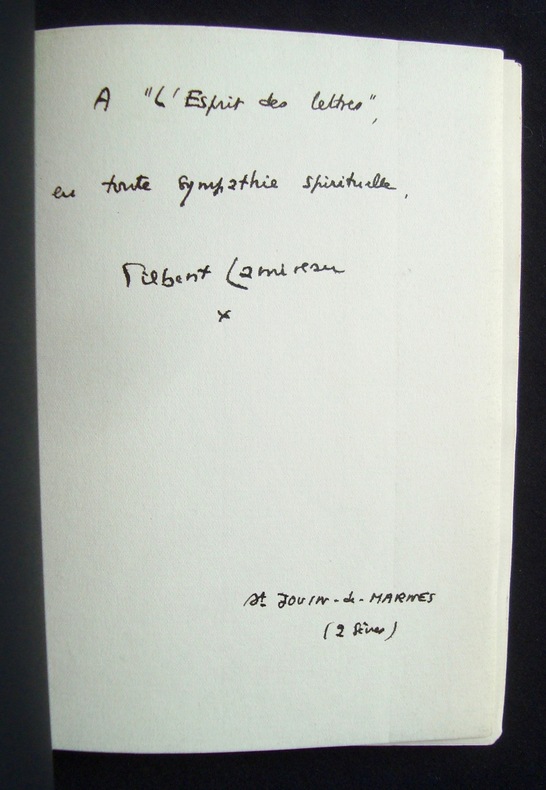 A "L'Esprit des lettres",
en toute sympathie spirituelle,
Gilbert Lamireau
x
St JOUIN-de-MARNES
(2 Sèvres)